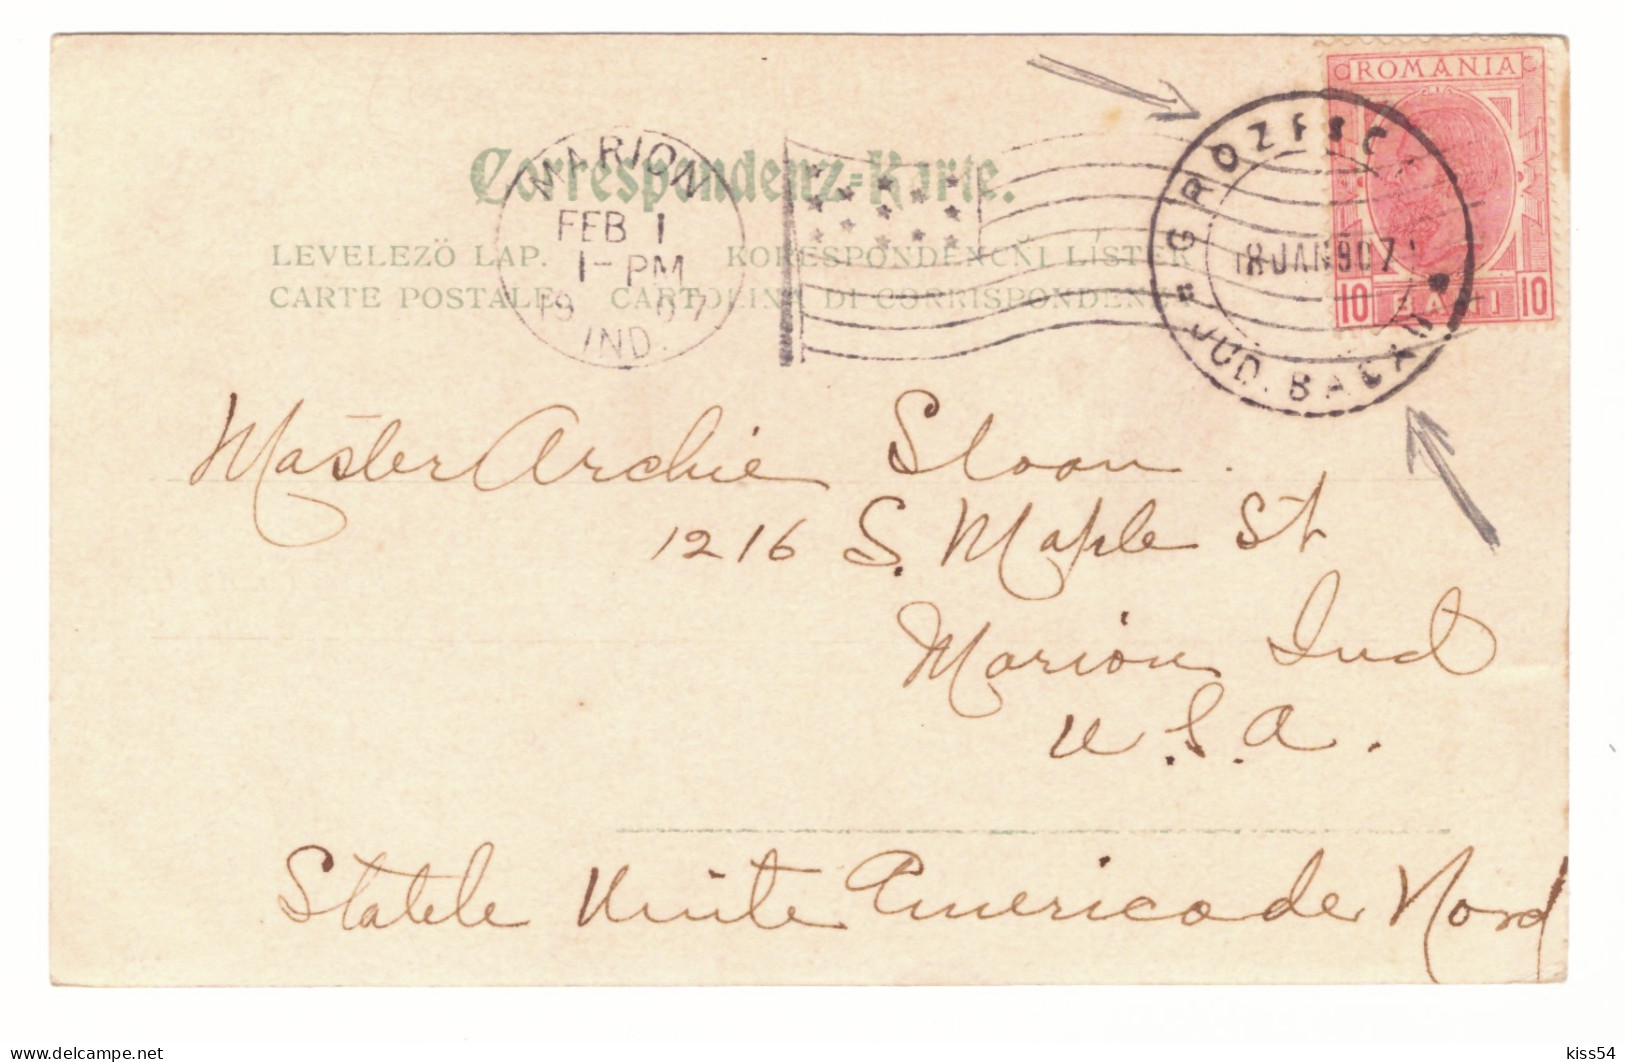 ROMANIA
GROZESCI
Correspondenz-Karte.
MARION
FEB 1
1-PM
1907
IND.
18 JAN 907
LEVELEZÖ LAP. KORESPONDENČNÍ LÍSTEK
CARTE POSTALE. CARTOLINA DI CORRISPONDENZA
10 BANI 10
JUD. BACAU
Master Archie Sloan.
1216 S. Maple St
Marion Ind
U.S.A.
Statele Unite Americade Nord
kiss54